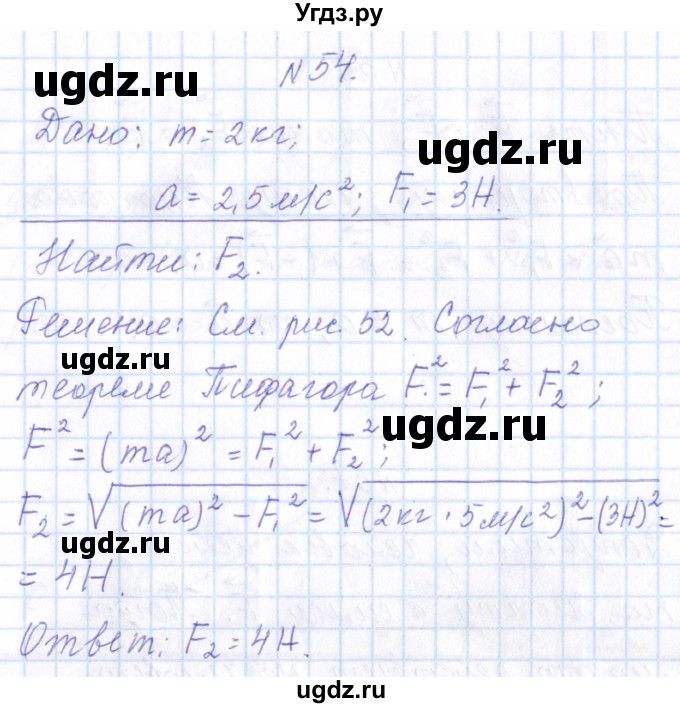 Угдз.ру
№54.
ugdz.ru
Дано: m = 2 кг;
ugdz.ru
a = 2,5 м/с²; F₁ = 3Н.
Найти: F₂.
Решение: См. рис. 52. Согласно
ugdz.ru
теореме Пифагора F² = F₁² + F₂²;
ugdz.ru
F² = (ma)² = F₁² + F₂²;
F₂ = √(ma)² - F₁² = √(2кг · 5м/с²)² - (3Н)² =
ugdz.ru
= 4Н.
Ответ: F₂ = 4Н.
ugdz.ru